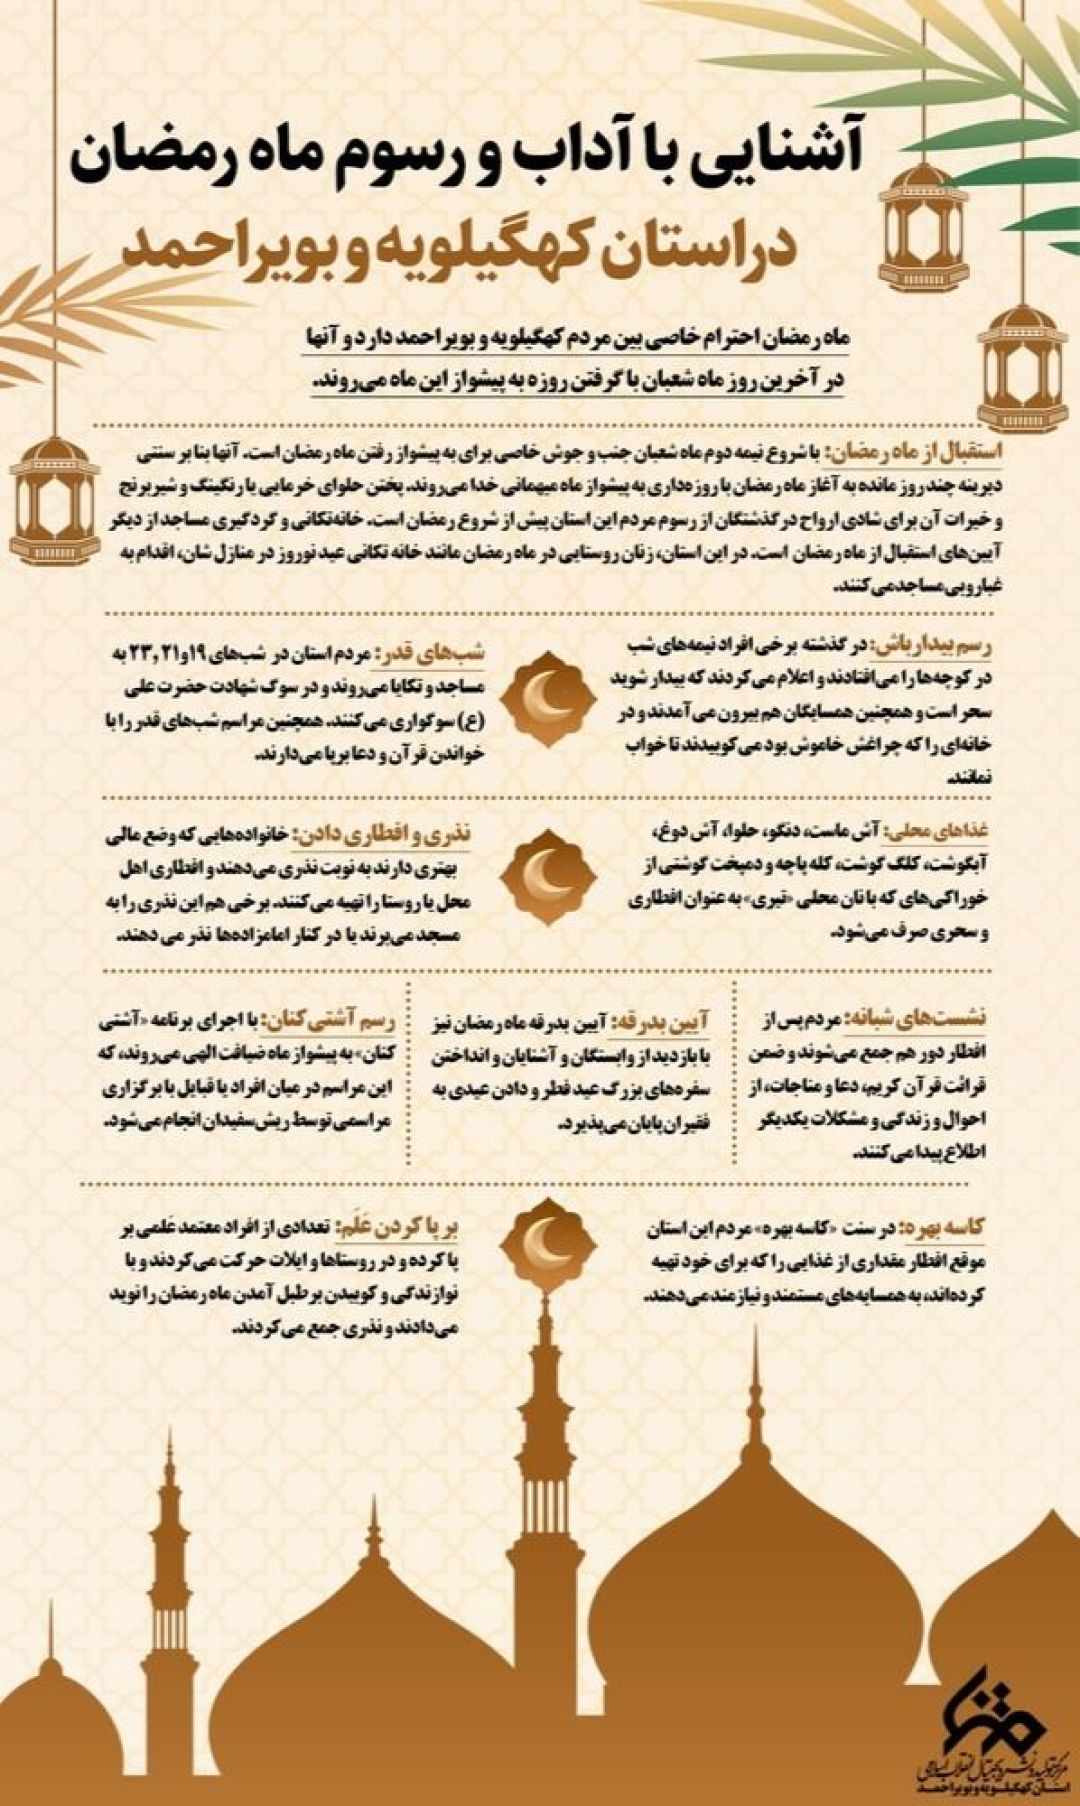 آشنایی با آداب و رسوم ماه رمضان
در استان کهگیلویه و بویراحمد
ماه رمضان احترام خاصی بین مردم کهگیلویه و بویراحمد دارد و آنها
در آخرین روز ماه شعبان با گرفتن روزه به پیشواز این ماه می‌روند.
استقبال از ماه رمضان: با شروع نیمه دوم ماه شعبان جنب و جوش خاصی برای به پیشواز رفتن ماه رمضان است. آنها بنا بر سنتی
دیرینه چند روز مانده به آغاز ماه رمضان با روزه‌داری به پیشواز ماه میهمانی خدا می‌روند. پختن حلوای خرمایی یا رنگینگ و شیربرنج
و خیرات آن برای شادی ارواح درگذشتگان از رسوم مردم این استان پیش از شروع رمضان است. خانه‌تکانی و گردگیری مساجد از دیگر
آیین‌های استقبال از ماه رمضان است. در این استان، زنان روستایی در ماه رمضان مانند خانه تکانی عید نوروز در منازل شان، اقدام به
غبارروبی مساجد می‌کنند.
رسم بیدارباش: در گذشته برخی افراد نیمه‌های شب
در کوچه‌ها را می‌افتادند و اعلام می‌کردند که بیدار شوید
سحر است و همچنین همسایگان هم بیرون می‌آمدند و در
خانه‌ای را که چراغش خاموش بود می‌کوبیدند تا خواب
نمانند.
شب‌های قدر: مردم استان در شب‌های ۱۹و۲۱ ,۲۳ به
مساجد و تکایا می‌روند و در سوگ شهادت حضرت علی
(ع) سوگواری می‌کنند. همچنین مراسم شب‌های قدر را با
خواندن قرآن و دعا برپا می‌دارند.
غذاهای محلی: آش ماست، دنگو، حلوا، آش دوغ،
آبگوشت، کلگ گوشت، کله پاچه و دمپخت گوشتی از
خوراکی‌های که با نان محلی «تیری» به عنوان افطاری
و سحری صرف می‌شود.
نذری و افطاری دادن: خانواده‌هایی که وضع مالی
بهتری دارند به نوبت نذری می‌دهند و افطاری اهل
محل یا روستا را تهیه می‌کنند. برخی هم این نذری را به
مسجد می‌برند یا در کنار امامزاده‌ها نذر می دهند.
نشست‌های شبانه: مردم پس از
افطار دور هم جمع می‌شوند و ضمن
قرائت قرآن کریم، دعا و مناجات، از
احوال و زندگی و مشکلات یکدیگر
اطلاع پیدا می‌کنند.
آیین بدرقه: آیین بدرقه ماه رمضان نیز
با بازدید از وابستگان و آشنایان و انداختن
سفره‌های بزرگ عید فطر و دادن عیدی به
فقیران پایان می‌پذیرد.
رسم آشتی کنان: با اجرای برنامه «آشتی
کنان» به پیشواز ماه ضیافت الهی می‌روند، که
این مراسم در میان افراد یا قبایل با برگزاری
مراسمی توسط ریش‌سفیدان انجام می‌شود.
کاسه بهره: در سنت «کاسه بهره» مردم این استان
موقع افطار مقداری از غذایی را که برای خود تهیه
کرده‌اند، به همسایه‌های مستمند و نیازمند می‌دهند.
بر پا کردن عَلَم: تعدادی از افراد معتمد عَلمی بر
پا کرده و در روستاها و ایلات حرکت می‌کردند و با
نوازندگی و کوبیدن بر طبل آمدن ماه رمضان را نوید
می‌دادند و نذری جمع می‌کردند.
مرکز تولید و نشر دیجیتال انقلاب اسلامی
استان کهگیلویه و بویراحمد